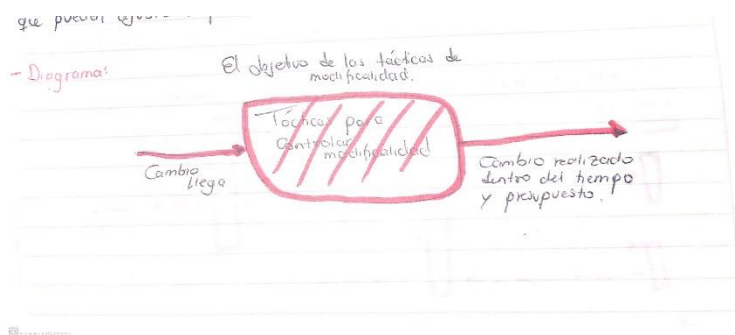 que pueden
- Diagrama:
El objetivo de las tácticas de
modificalidad.
Tácticas para
Controlar
modificalidad
Cambio
llega
Cambio realizado
dentro del tiempo
y presupuesto.